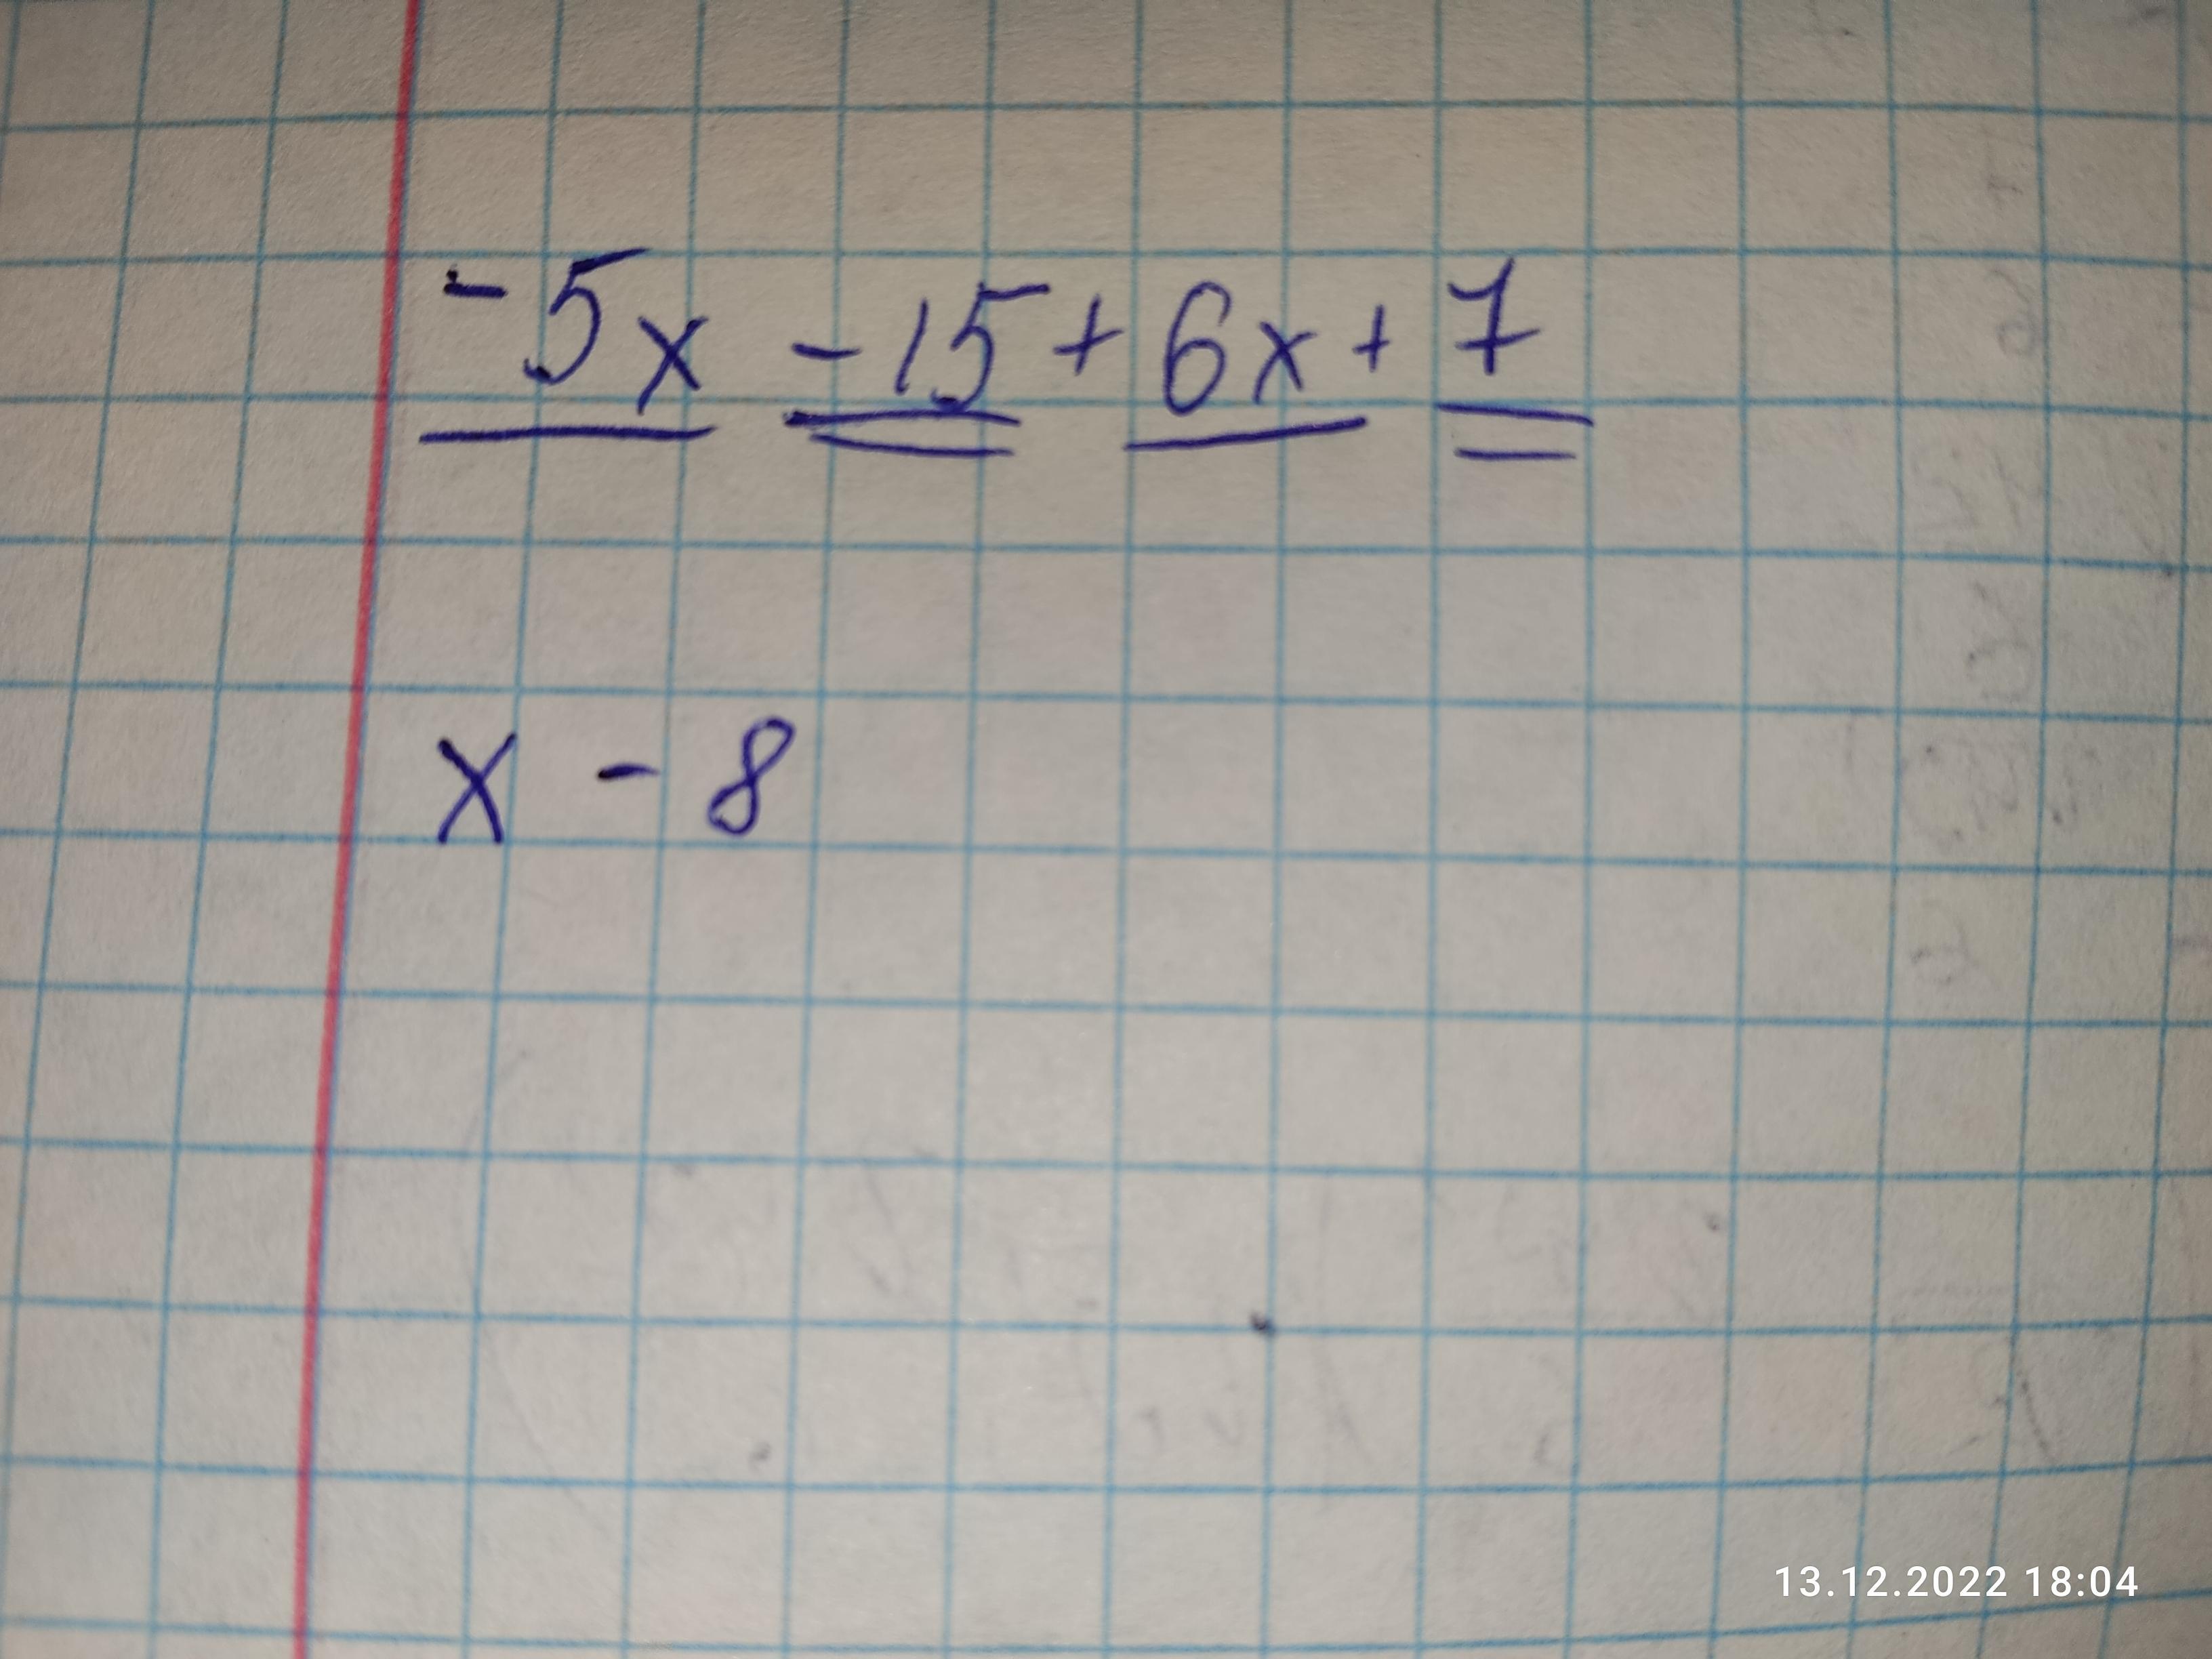 -5x -15 + 6x + 7
x - 8
13.12.2022 18:04